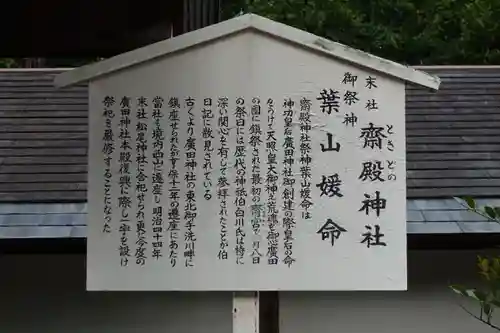 末社 齋殿神社
ときどの
御祭神
葉山媛命
齋殿神社祭神葉山媛命は
神功皇后廣田神社御創建の際皇后の命
をうけて天照皇大御神之荒魂を御心廣田
の國に鎮祭された最初の齋宮で八月八日
の祭日には歴代の神祇伯白川氏は特に
深い関心を有して参拝されたことが伯
日記に散見されている
古くより廣田神社の東北御手洗川畔に
鎮座せられたが享保十二年の遷座にあたり
當社も境内西山に遷座し明治四十四年
末社松尾神社に合祀せられ更に今度の
廣田神社本殿復興に際し一宇を設け
祭祀を厳修することになった